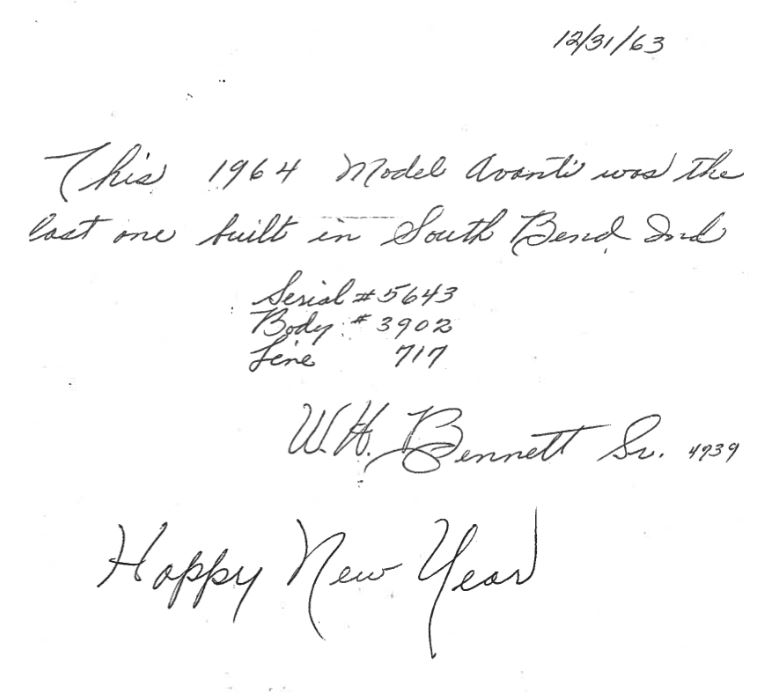 12/31/63
This 1964 Model Avanti was the
last one built in South Bend Ind
Serial # 5643
Body # 3902
Line 717
W.H. Bennett Sr. 4739
Happy New Year